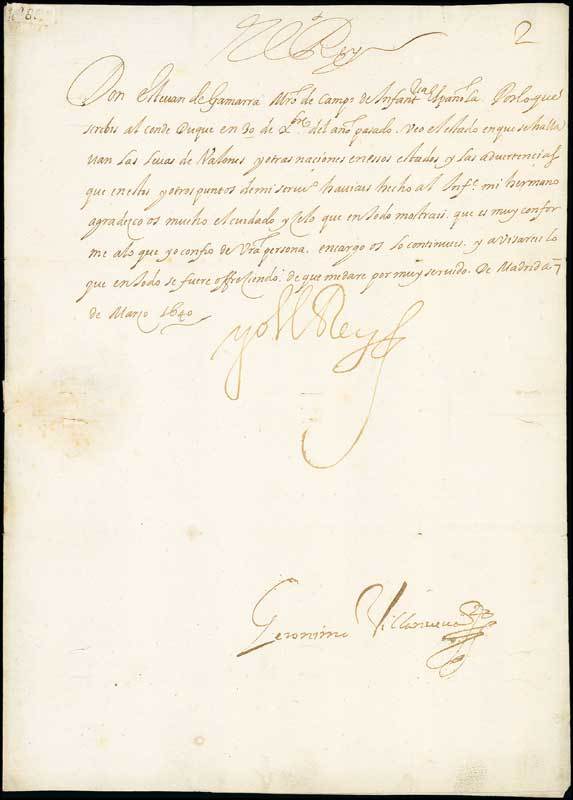 El Rey
2
Don Esteuan de Gamarra Mro de Campo de Infantria Española. Por lo que
scribis al conde Duque en 30 de Xbre del año pasado. Veo el estado en que se halla
uan las leuas de Valones y otras naciones en essos estados y las aduertencias
que en esto y otros puntos de mi seruo hauiais hecho al Infte mi hermano
agradezco os mucho el cuidado y zelo que en todo mostrais. que es muy confor
me a lo que yo confio de Vra persona. encargo os lo continueis. y auisareis lo
que en todo se fuere offreciendo. de que me dare por muy seruido. De Madrid a 7
de Março 1640
yo el Rey
Geronimo Villanueua